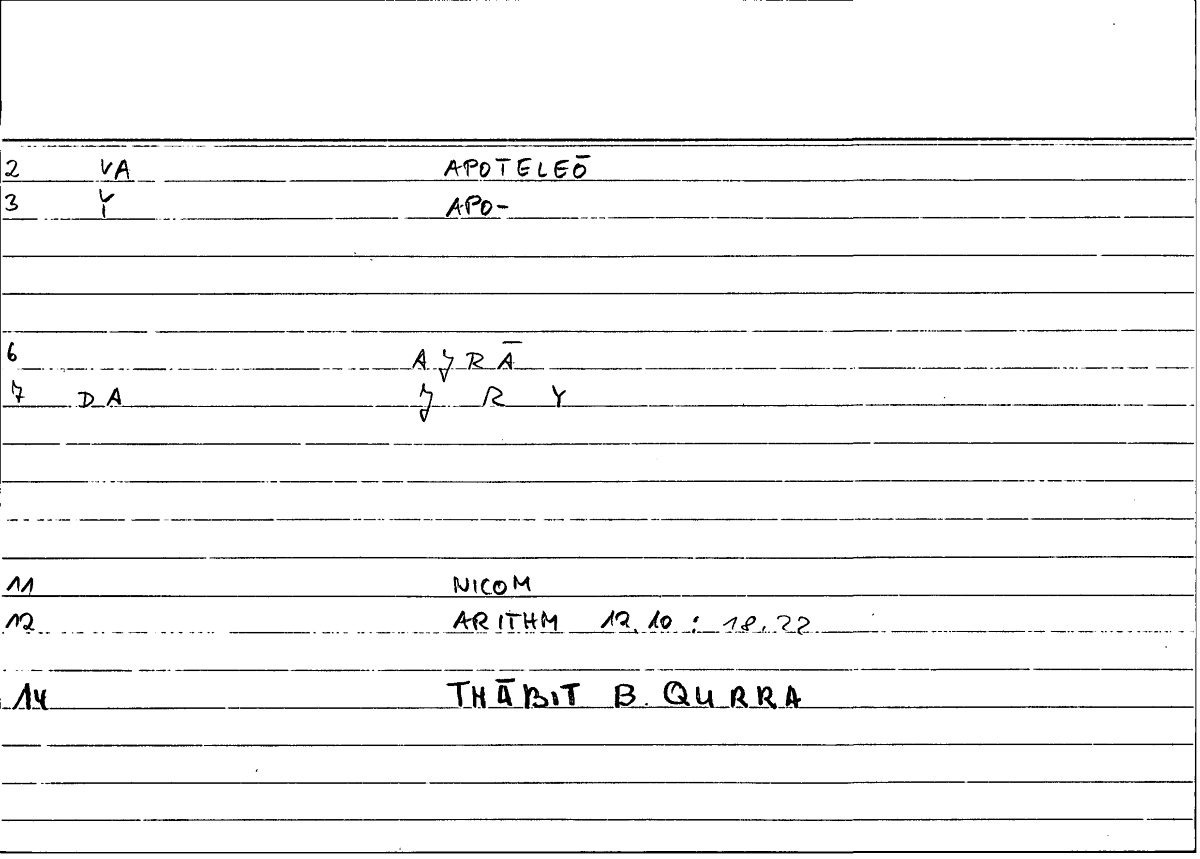 2 VA APOTELEŌ
3 Y APO-
6 A J R Ā
7 DA J R Y
11 NICOM
12 ARITHM 12.10 : 18.22
14 THĀBIT B. QURRA